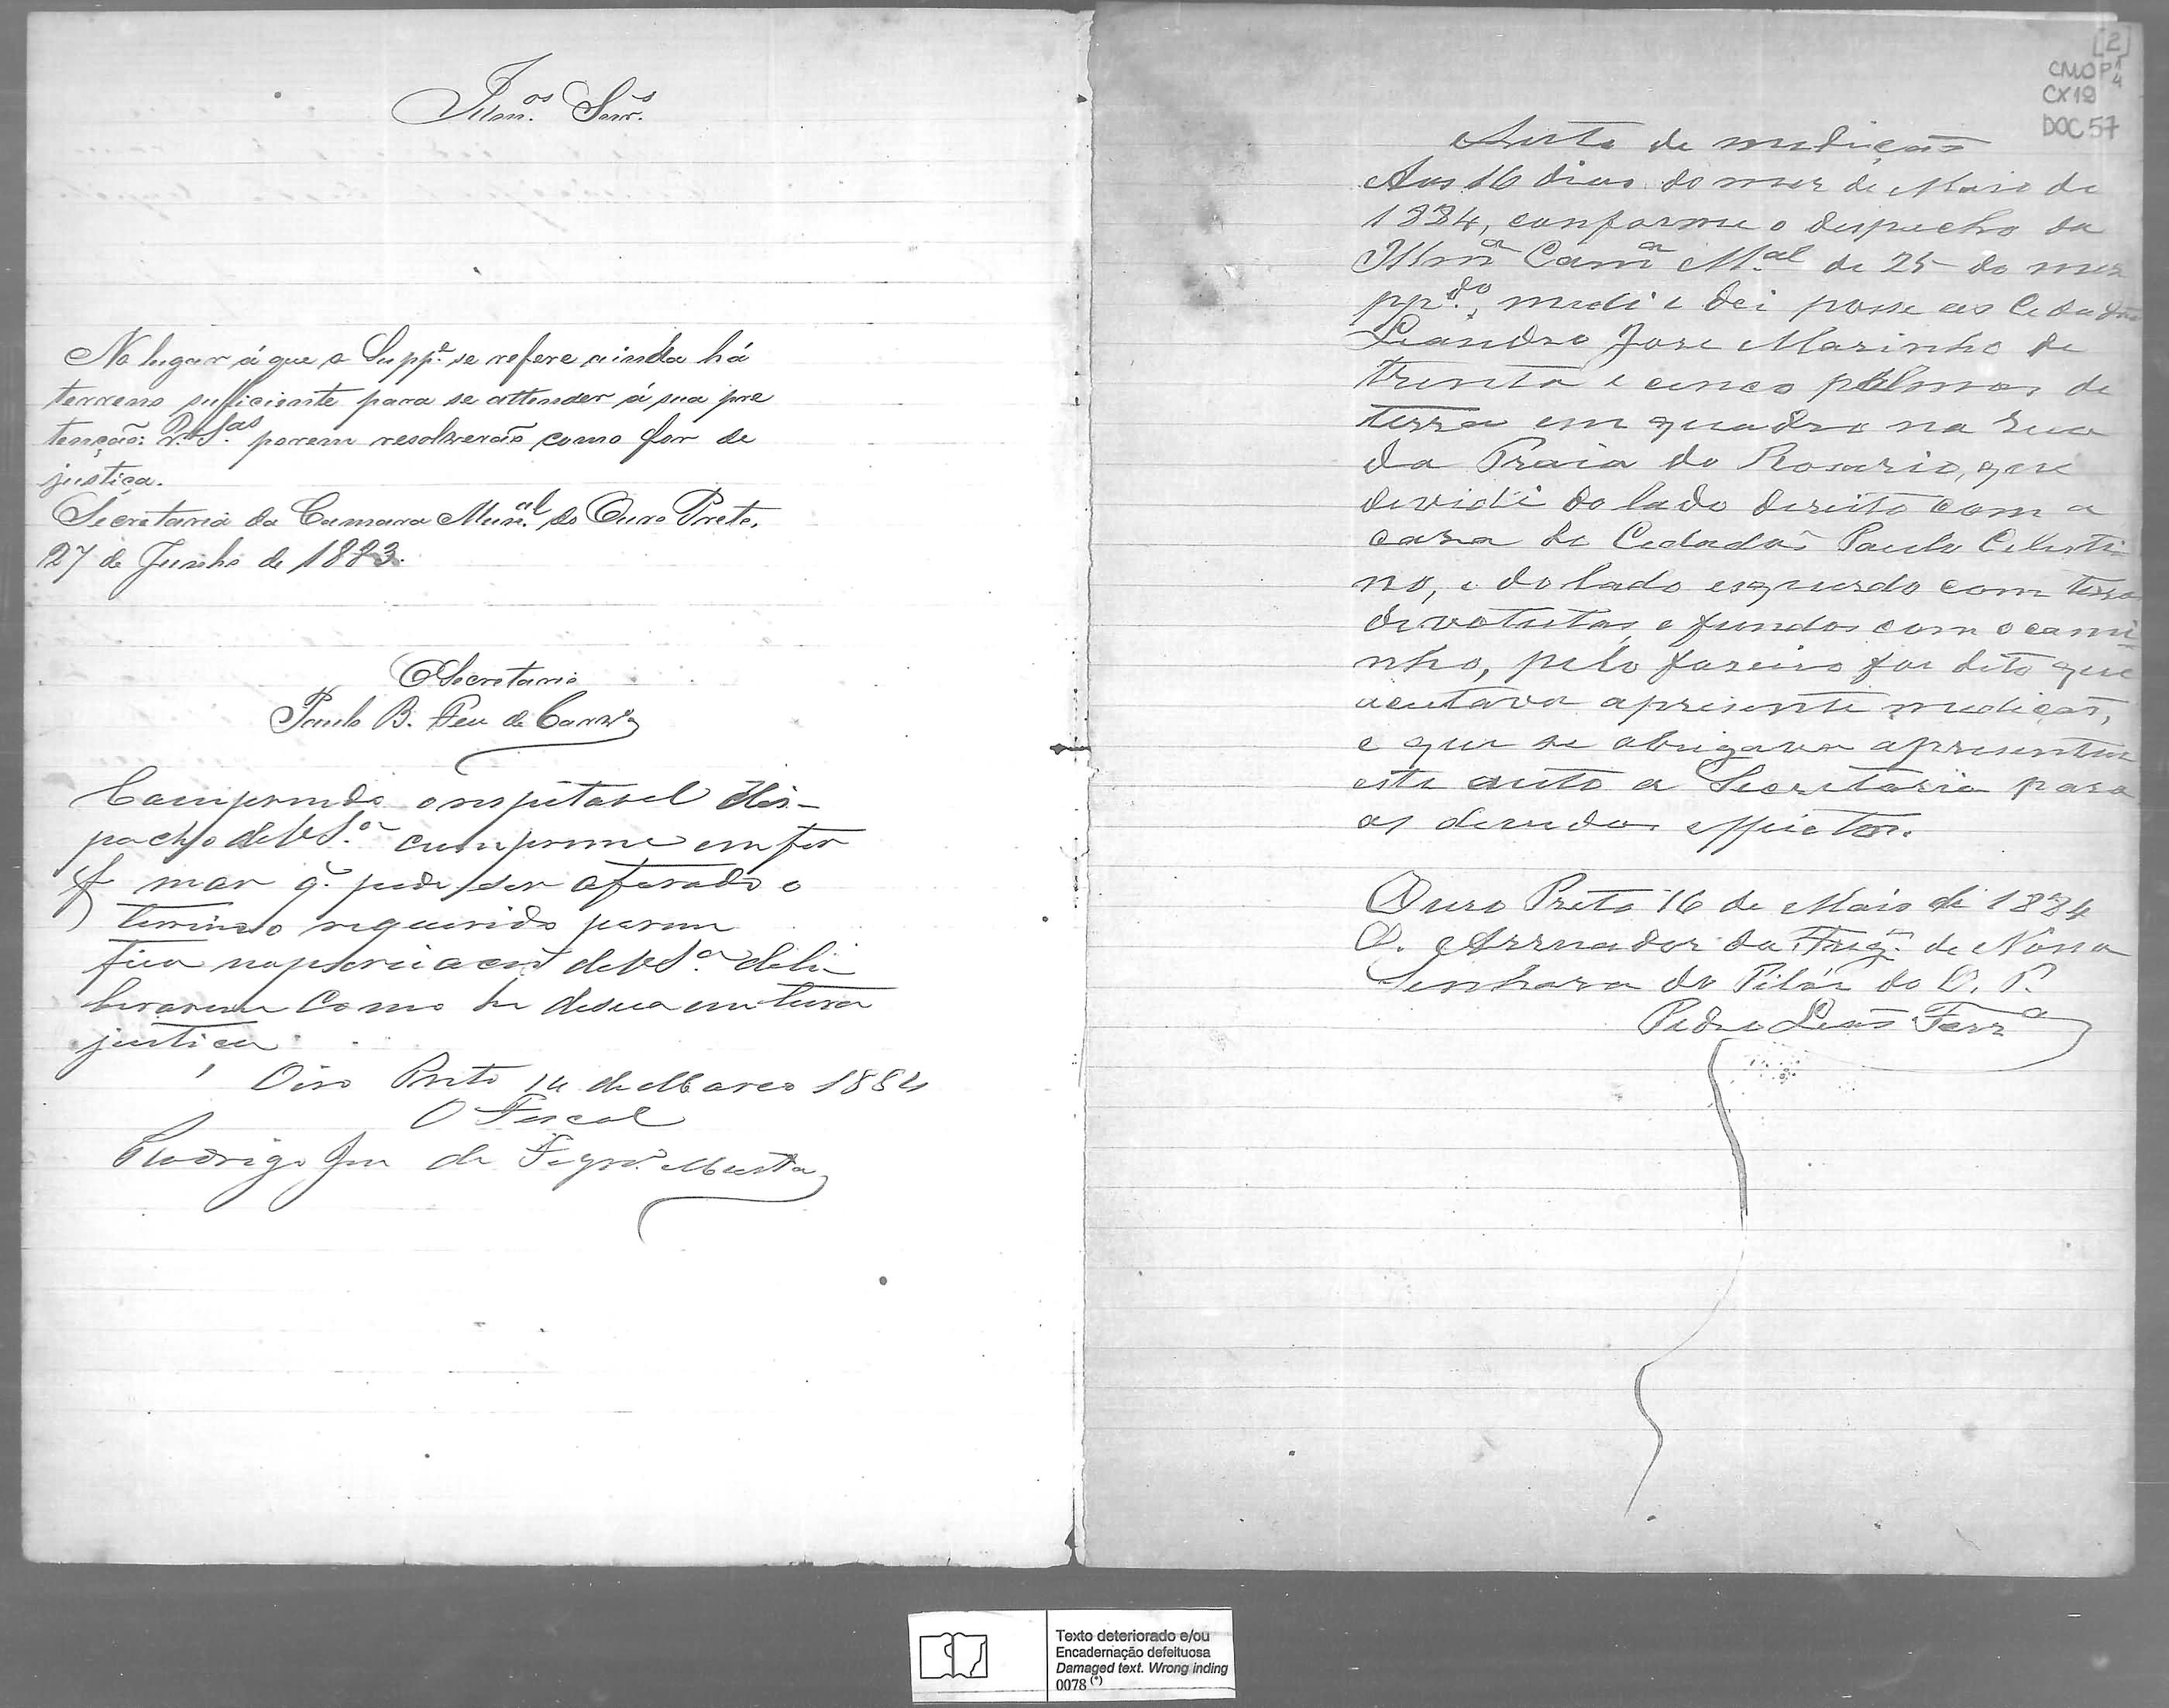 Illm.os Snr.s
No lugar á que o Supp.e se refere ainda há
terreno sufficiente para se attender á sua pre
tenção: V.as S.as porem resolverão como for de
justiça.
Secretaria da Camara Mun.al do Ouro Preto,
27 de Junho de 1883.
O Secretario
Paulo B. de
Comprindo o respitavel dis-
pacho de V S.as cumpre me emfor
mar q. pode ser aforado o
terreno requerido porem
fica de V S.as deli
berarem como he de sua
justica
Oiro Preto 14 de Marco 1884
O Fiscal
Rodrigo de Figrd.o
[2]
CMOP 1/4
CX 12
DOC 57
Auto de medição
Aos 16 dias do mez de Maio de
1884, conforme o despacho da
Illm.a Cam.a M.al de 25 do mez
pp.do, medi e dei posse ao Cedadão
Leandro Jose Marinho de
trinta e cinco palmos de
terra em quadro na rua
da Praia do Rosario, que
devidi do lado direito com a
casa do Cedadão Paulo Celesti
no, e do lado esquerdo com terra
devolutas e fundos com o cami
nho, pelo foreiro foi dito que
aceitava apresente medição,
e que se obrigava apresentar
este auto a Secretaria para
os devedos effeictos.
Ouro Preto 16 de Maio de 1884
O. Arruador da Freg.a de Nossa
Senhora do Pilár do O. P.
Pedro Leão Ferr.a
Texto deteriorado e/ou
Encadernação defeituosa
Damaged text. Wrong inding
0078 (*)